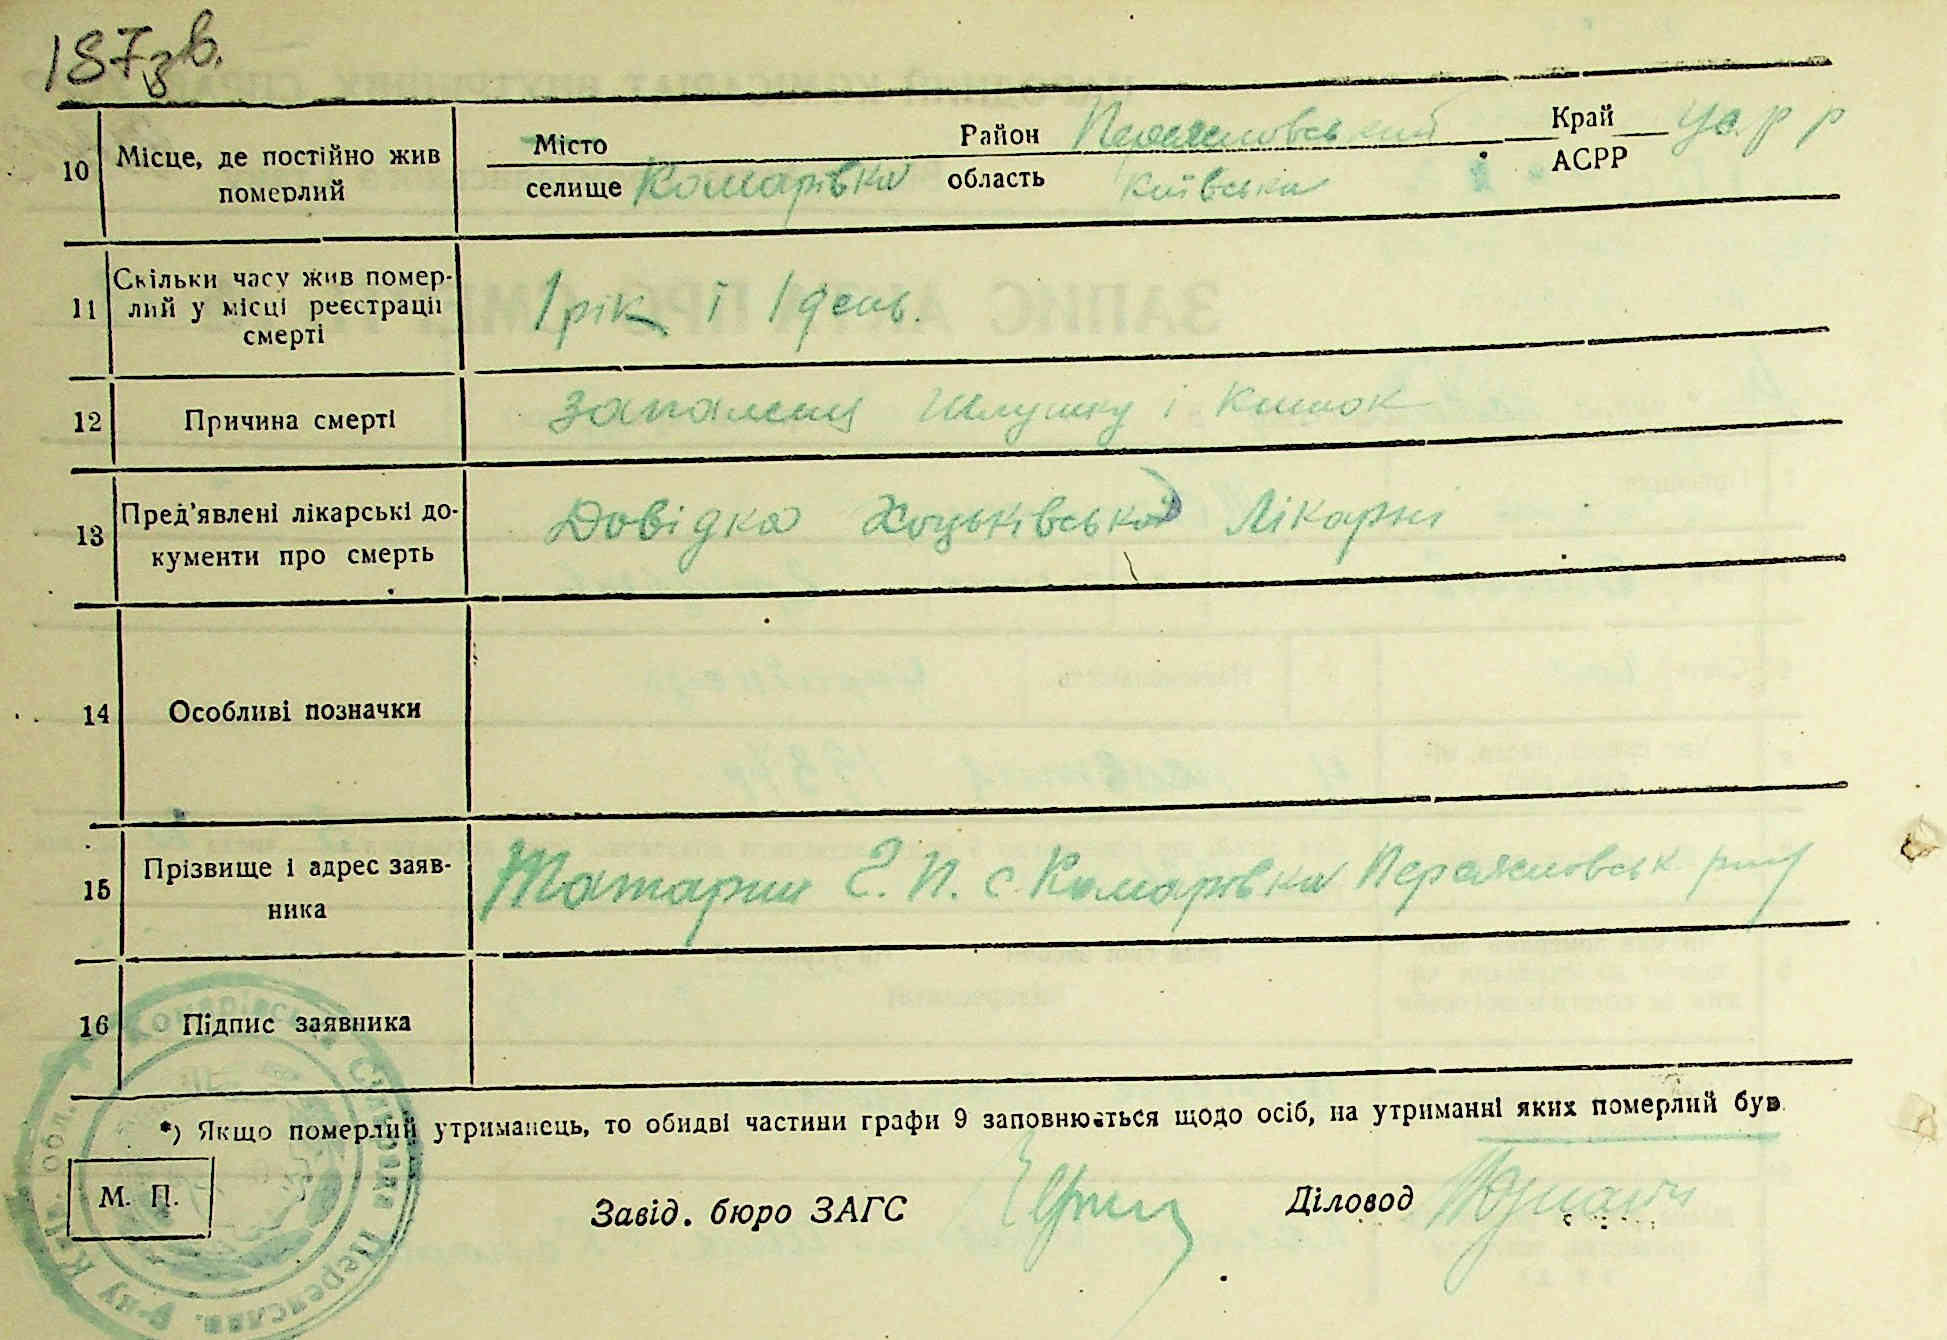 187зв.
10 Місце, де постійно жив померлий
Місто Район Переяславський Край УСРР
селище Комарівка область Київська АСРР
11 Скільки часу жив помер-
лий у місці реєстрації
смерті
1 рік і 1 день.
12 Причина смерті Запаленя Шлунку і Кишок
13 Пред'явлені лікарські до-
кументи про смерть
Довідка Хоцьківської Лікарні
14 Особливі позначки
15 Прізвище і адрес заяв-
ника
Татарин Г. П. с. Комарівка Переяславськ р-ну
16 Підпис заявника
*) Якщо померлий утриманець, то обидві частини графи 9 заповнюється щодо осіб, на утриманні яких померлий був
М. П.
Завід. бюро ЗАГС Діловод
Комарівська Сільрада Переяслав. Р-ну К-ї. обл.